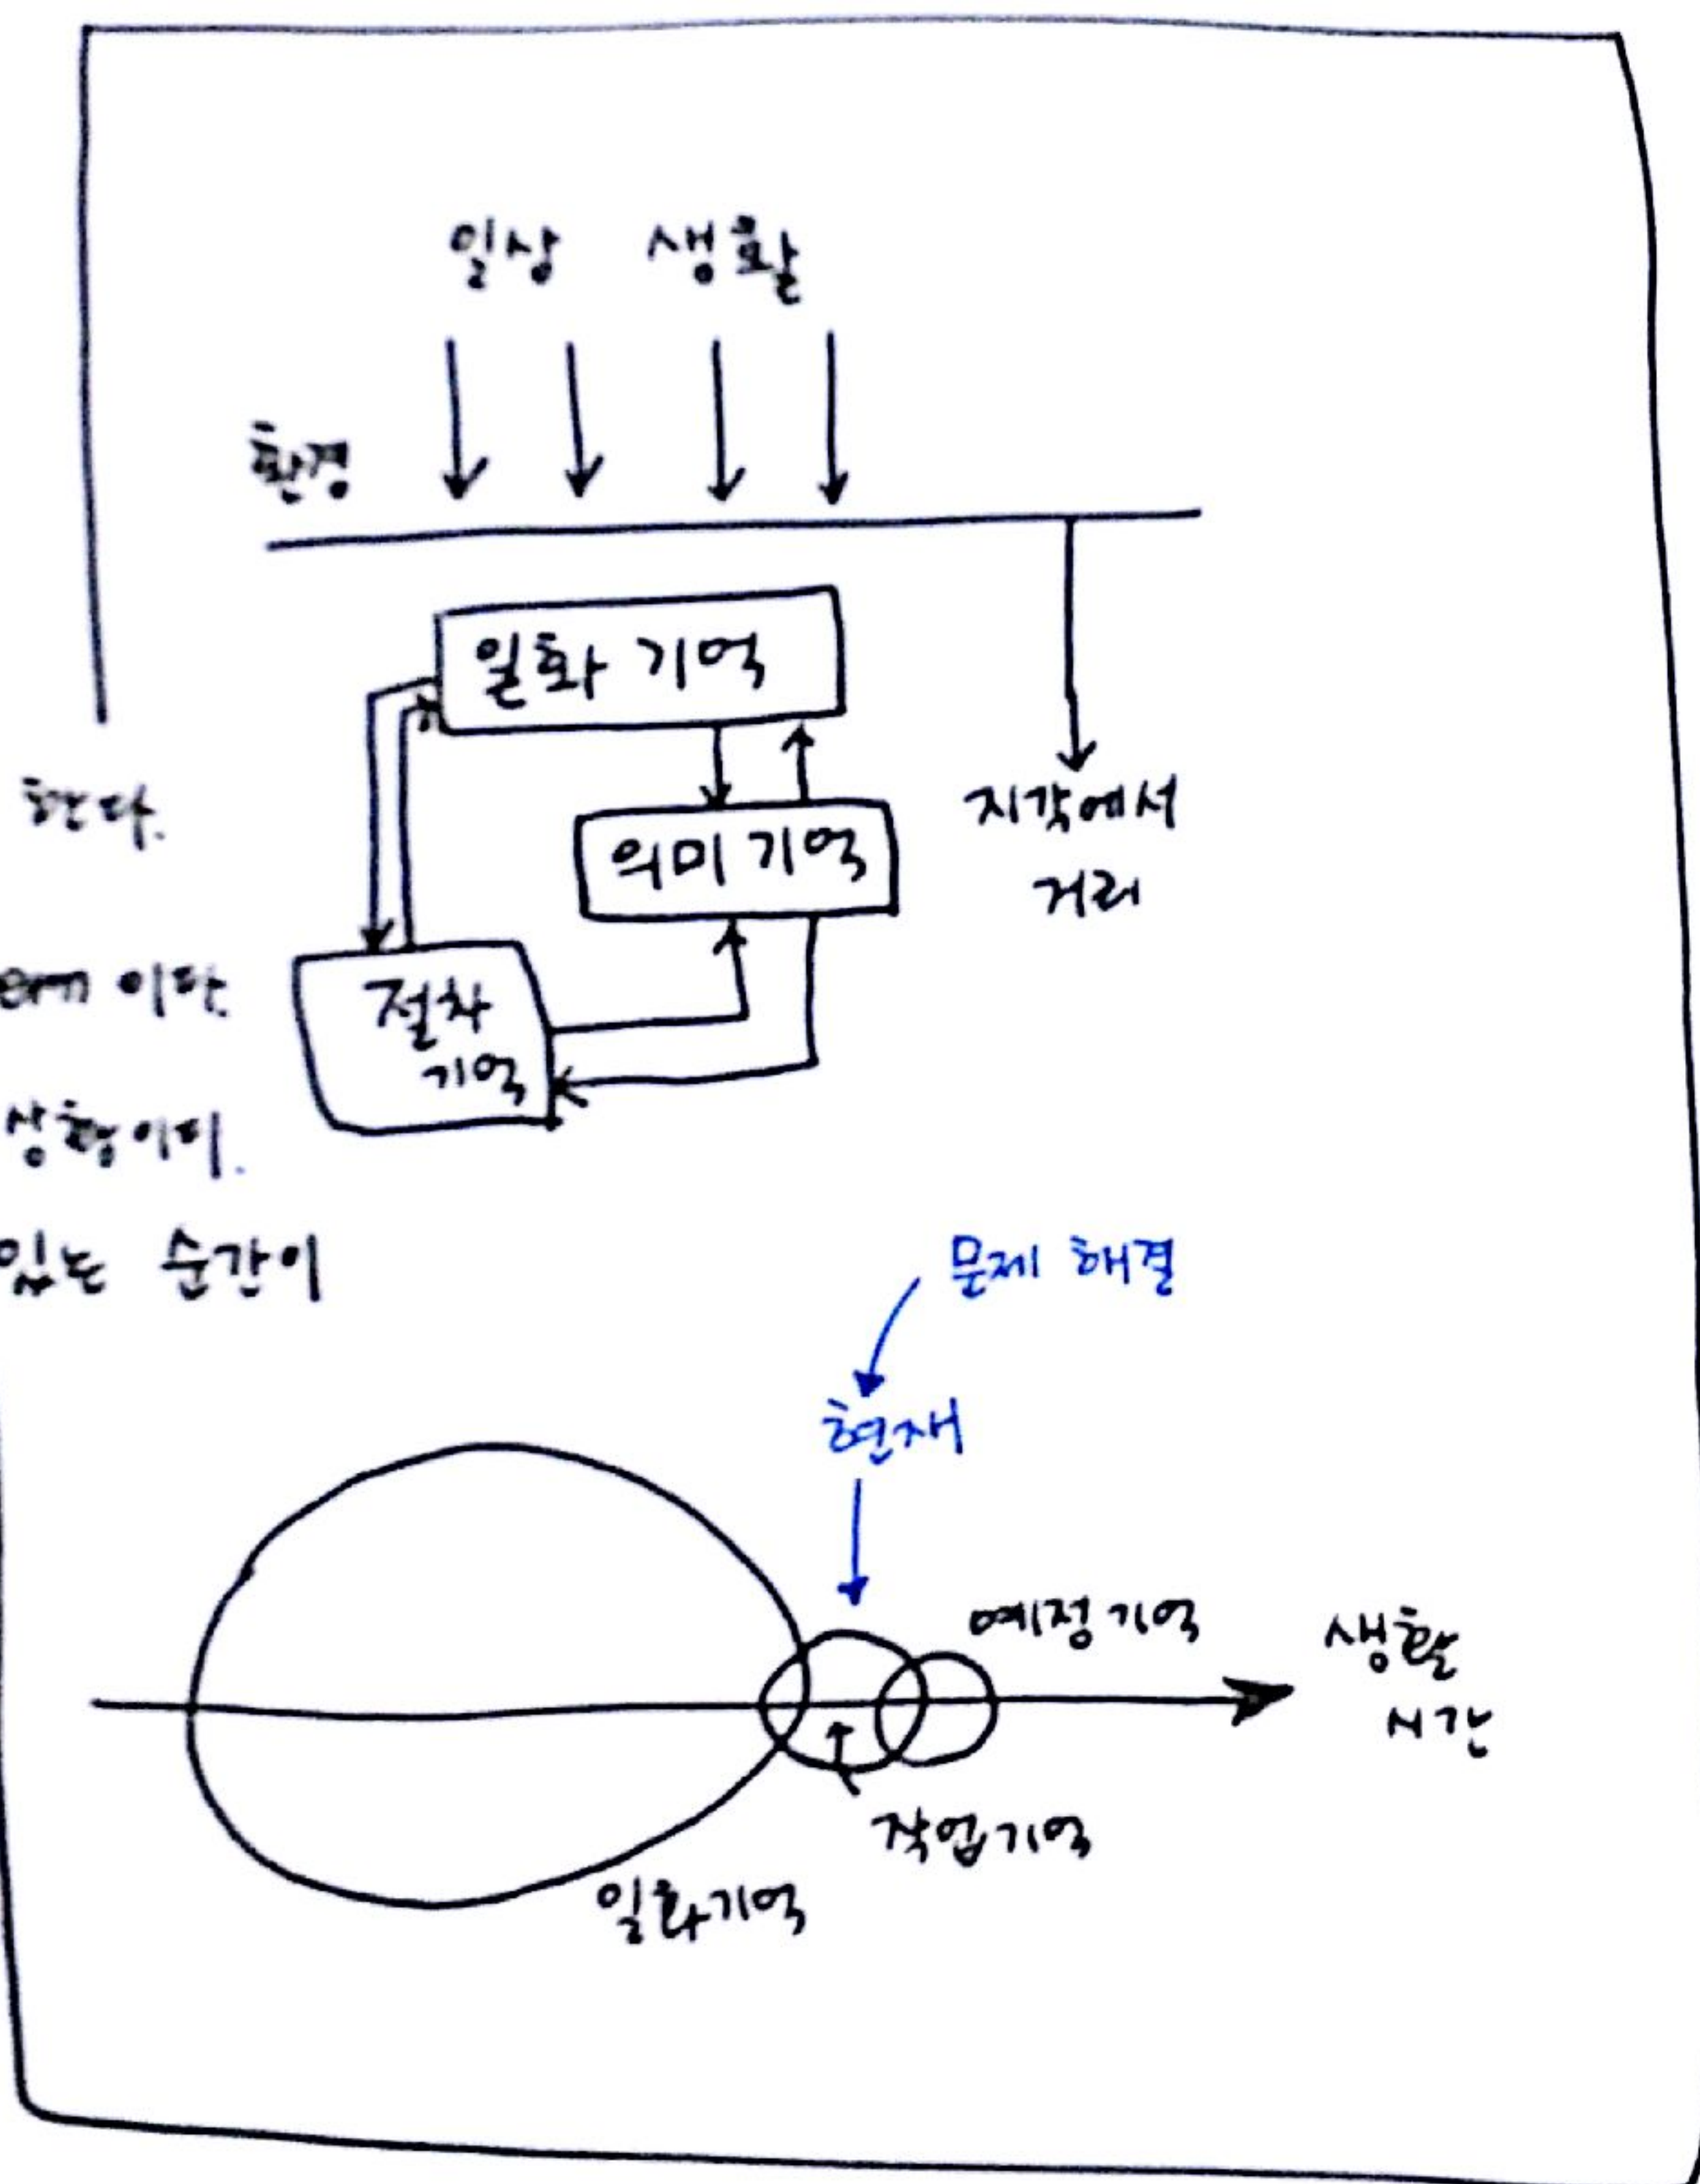 일상 생활
환경
일화 기억
의미 기억
지각에서
거리
절차
기억
한다.
이다.
상황이다.
있는 순간이
문제 해결
현재
예정기억
생활
시간
작업기억
일화기억